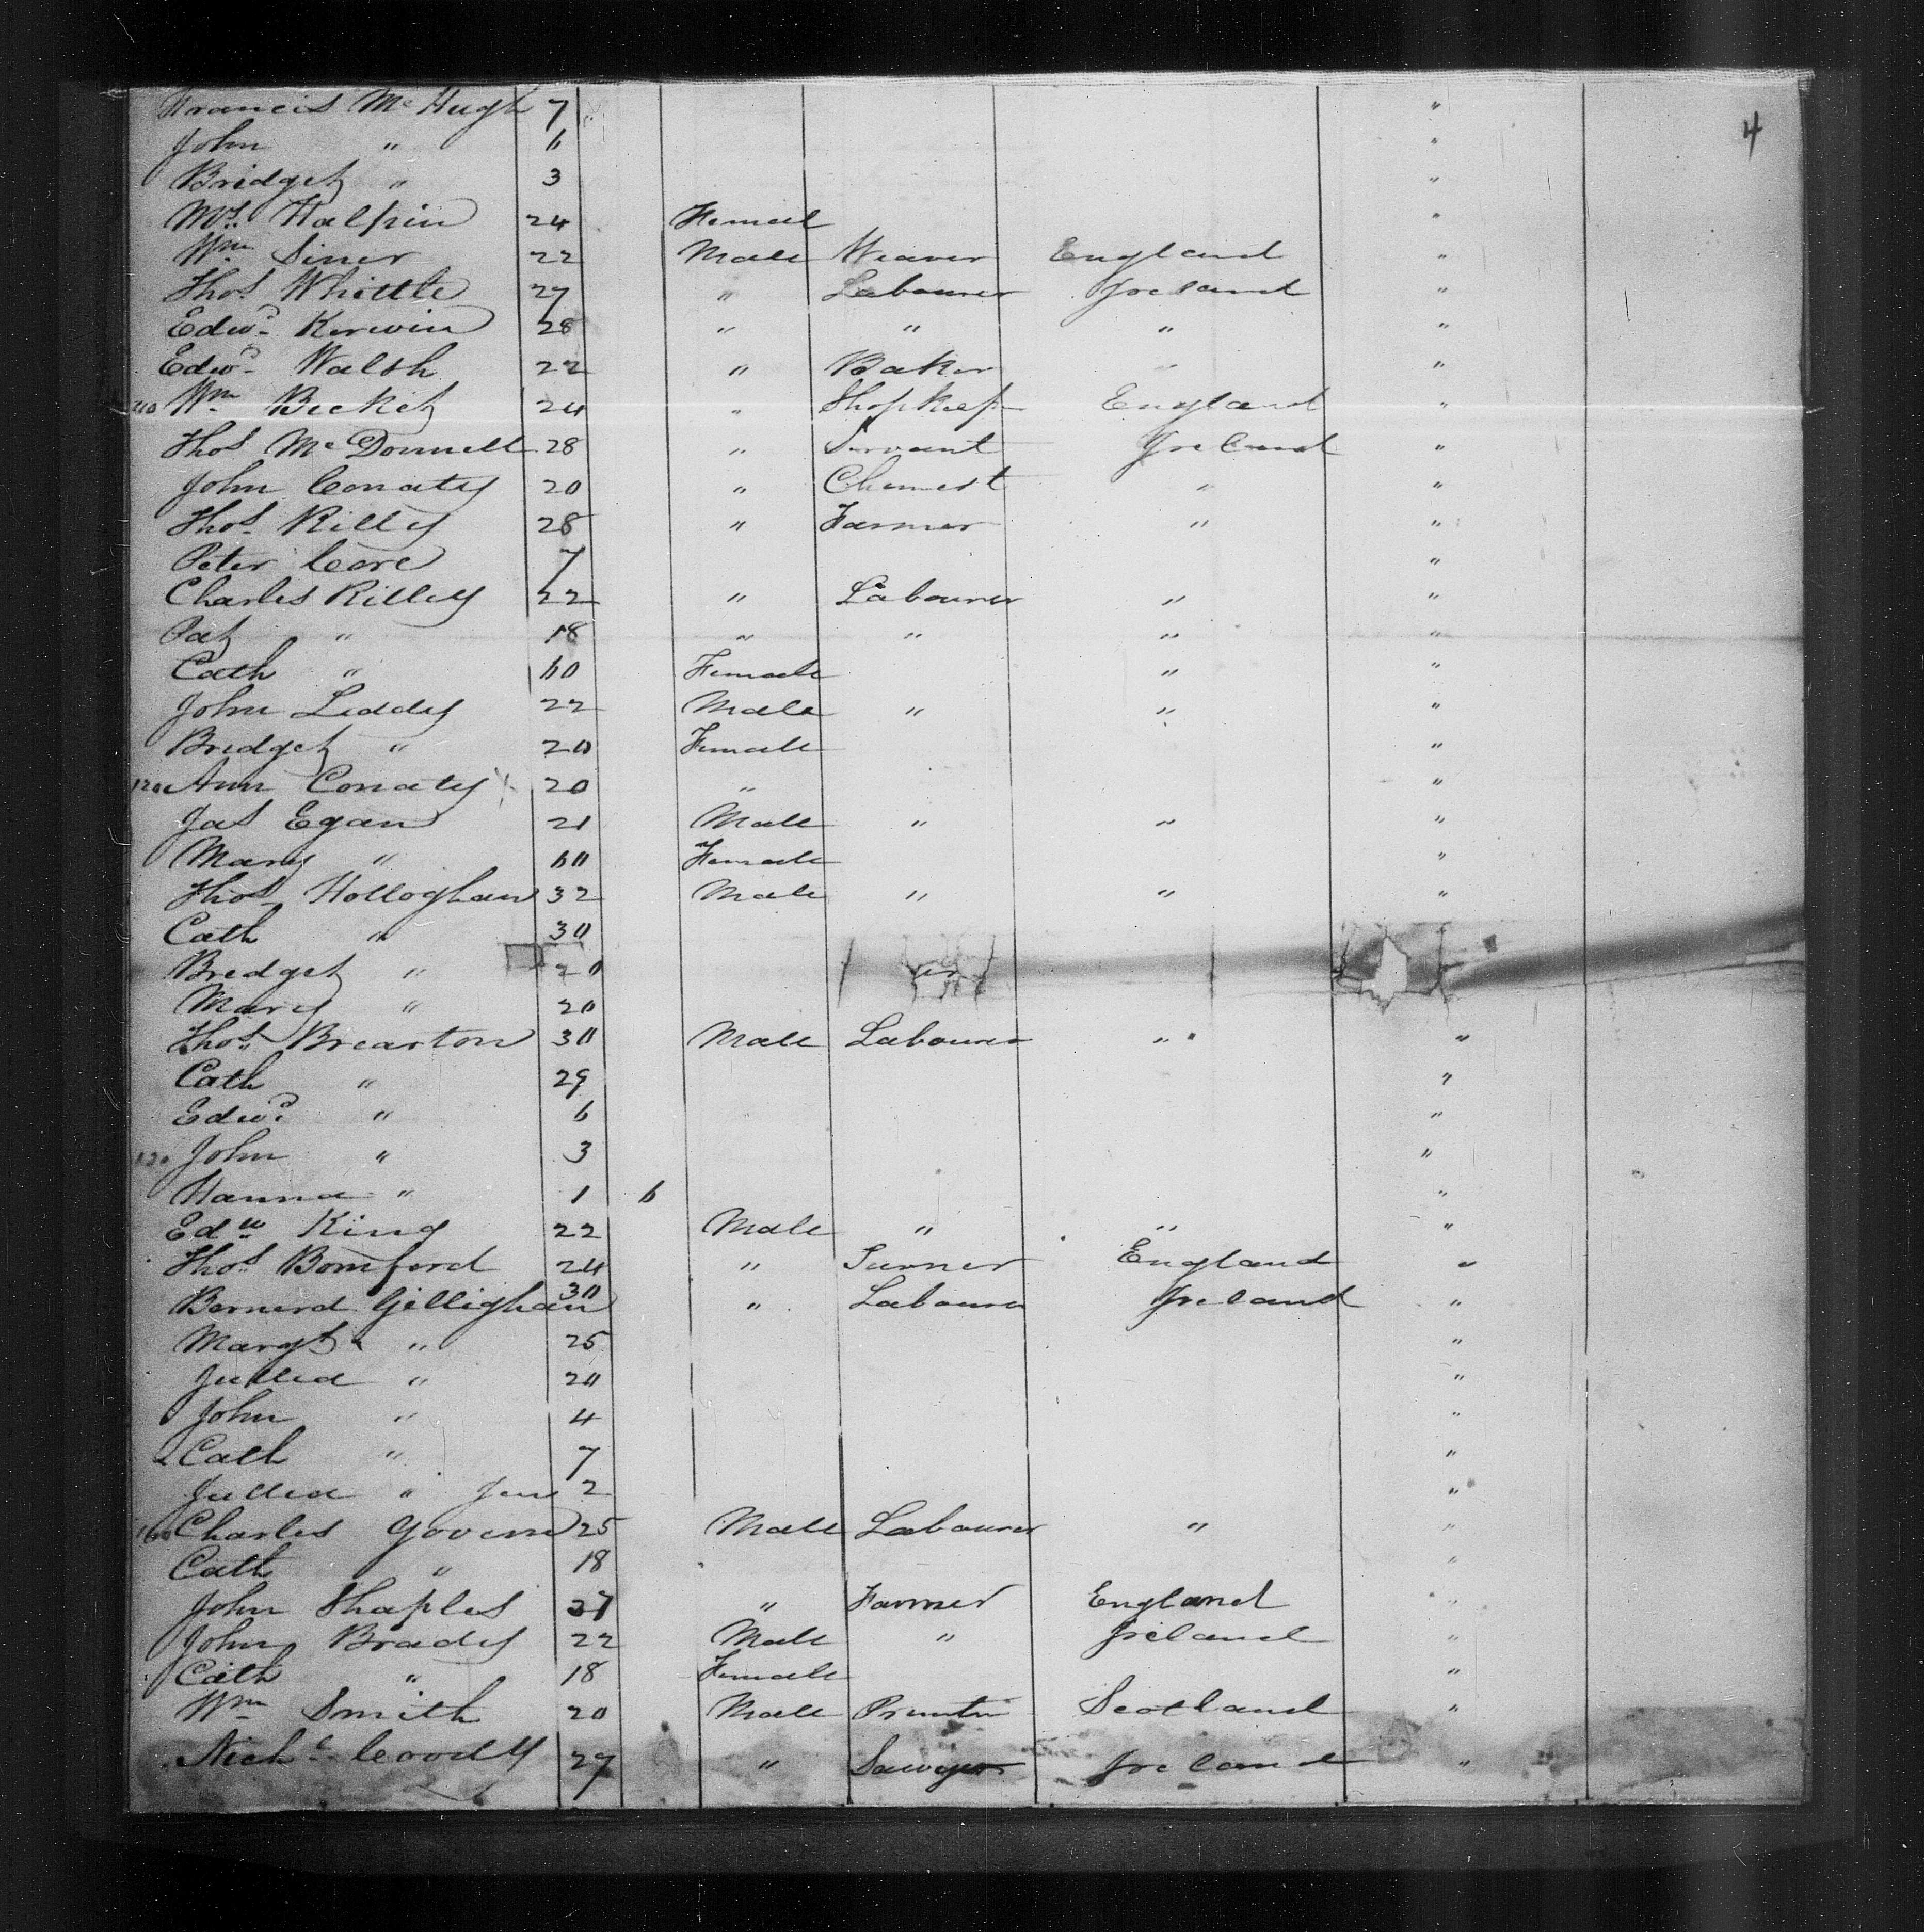 4
Francis McHugh 7 "
John " 6 "
Bridget " 3 "
Mrs. Halpin 24 Femail "
Wm. Siner 22 Male Weaver England "
Thos. Whittle 27 " Labourer Ireland "
Edwd. Kerwin 28 " " " "
Edwd. Walsh 22 " Baker " "
Wm. Becket 24 " Shopkeep England "
Thos McDonnell 28 " Servant Ireland "
John Conaty 20 " Chemest " "
Thos. Rilley 28 " Farmer " "
Peter Core 7 "
Charles Rilley 22 " Labourer " "
Pat " 18 " " " "
Cath " 60 Female " "
John Leddy 22 Male " " "
Bridget " 20 Female "
120 Ann Conaty 20 " "
Jas Egan 21 Male " " "
Mary " 60 Female "
Thos. Holloghan 32 Male " " "
Cath " 30
Bredget " 20
Mary " 20
Thos. Brearton 30 Male Labourer " "
Cath " 29 "
Edwd. " 6 "
130 John " 3 "
Hanna " 1 6 "
Edw. King 22 Male " " "
Thos. Bomford 24 " Turner England "
Bernerd Gillighan 30 " Labourer Ireland "
Margt. " 25 "
Jullia " 20 "
John " 4 "
Cath " 7 "
Jullia " Jun 2 "
Charles Govern 25 Male Labourer " "
Cath " 18 "
John Shaples 27 " Farmer England "
John Brady 22 Male " Ireland "
Cath " 18 Female "
Wm. Smith 20 Male Printer Scotland "
Nichs. Coody 27 " Sawyer Ireland "